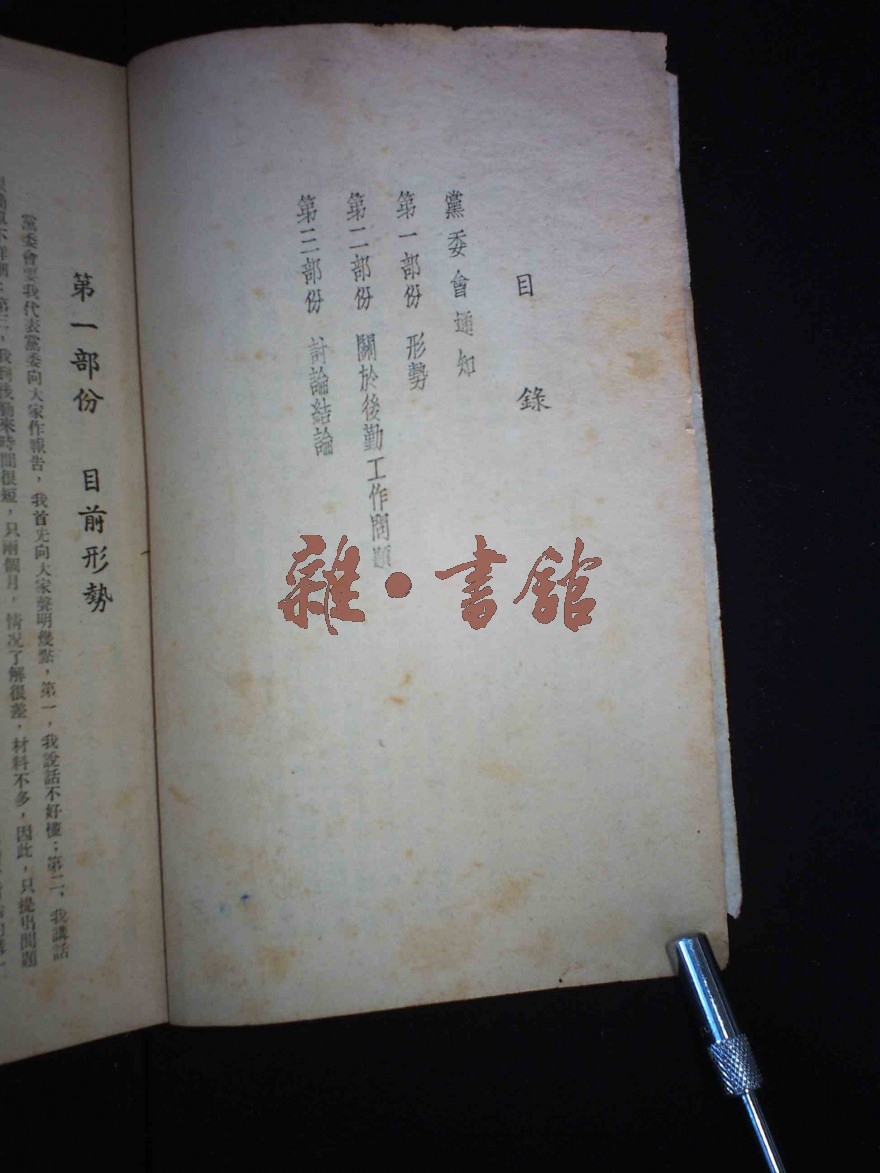 目錄
黨委會通知
第一部份 形勢
第二部份 關於後勤工作問題
第三部份 討論結論
雜·書館
第一部份 目前形勢
黨委會要我代表黨委向大家作報告，我首先向大家聲明幾點，第一，我說話不好懂；第二，我講話
第三，我到後勤來時間很短，只兩個月，情况了解很差，材料不多，因此，只提出問題